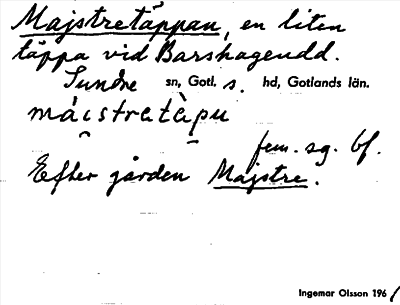 Majstretäppan, en liten
täppa vid Barshageudd.
Sundre sn, Gotl. s. hd, Gotlands län.
máistretàpu
fem. sg. bf.
Efter gården Majstre.
Ingemar Olsson 1961